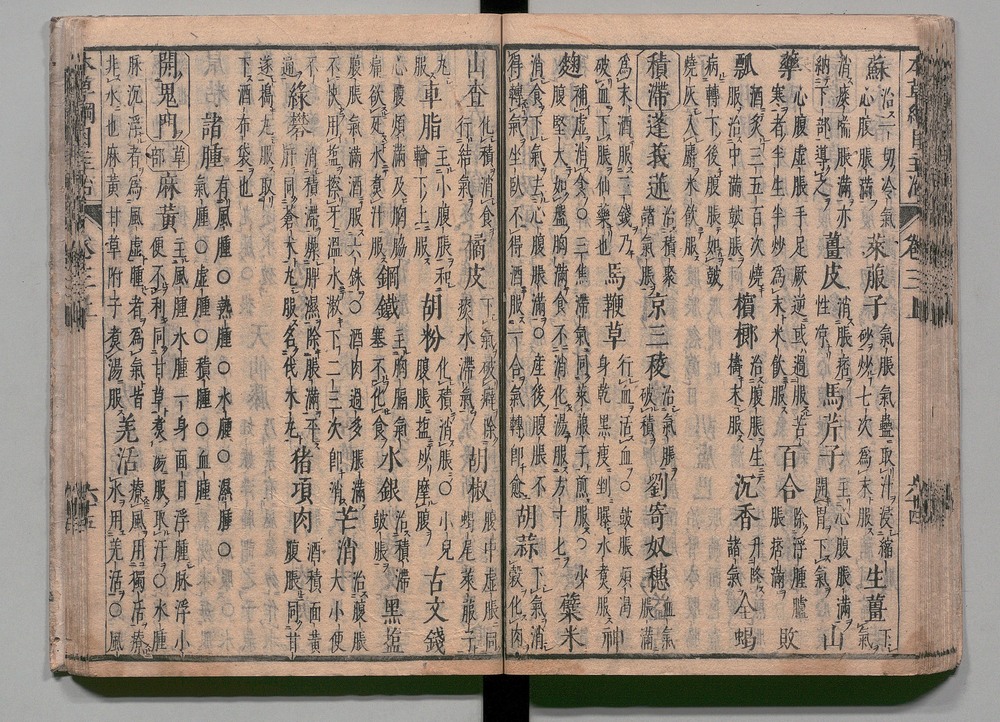 本草綱目主治 卷三上 六十四
蘇 治一切冷氣心腹脹滿 萊菔子 氣脹氣蠱取汁浸縮砂炒七次為末服 生薑 下氣
消痰喘脹滿亦納下部導之 薑皮 消脹痞性凉 馬芹子 主心腹脹滿開胃下氣 山
藥 心腹虛脹手足厥逆或過服苦寒者半生半炒為末米飲服 百合 除浮腫臚脹痞滿 敗
瓢 酒炙三五百次燒服治中滿皷脹 檳榔 治腹脹生擣末服 沉香 升降諸氣 全蝎
病轉下後腹脹如皷燒灰入麝米飲服
積滯 蓬莪蒁 治積聚諸氣脹 京三稜 治氣脹破積 劉寄奴穗 血氣脹滿
為末酒服三錢乃破血下脹仙藥也 馬鞭草 行血活血○皷脹煩渴身乾黑瘦剉曝水煮服 神
麹 補虛消食○三焦滯氣同萊菔子煎服○少腹堅大如盤胸滿食不消化湯服方寸匕 蘖米
消食下氣去心腹脹滿○産後腹脹不得轉氣坐臥不得酒服一合氣轉即愈 胡蒜 下氣消穀化肉
山查 化積消食行結氣 橘皮 下氣破癖除痰水滯氣 胡椒 腹中虛脹同蝎尾萊菔子
丸服 車脂 主小腹脹和輪下土服 胡粉 化積消脹○小兒腹脹塩炒摩腹 古文錢
心腹煩滿及胸脇痛欲死水煮汁服 鋼鐵 主胸膈氣塞不化食 水銀 治積滯皷脹 黑塩
腹脹氣滿服六銖○酒肉過多脹滿不快用塩擦牙溫水漱下二三次即消 芒消 治腹脹大小便
不通 綠礬 消積滯燥脾濕除脹滿平同蒼朮丸服名伐木丸 猪項肉 酒積面黃腹脹同甘
遂搗丸服取下酒布袋也
諸腫 有風腫○熱腫○水腫○濕腫○氣腫○虛腫○積腫○血腫
開鬼門 草部 麻黃 主風腫水腫一身面目浮腫脉浮小便不利同甘草煮湯服取汗○水腫
脉沉浮者為風虛腫者為氣皆非水也麻黃甘草附子煮湯服 羗活 療風用獨活療水用羗活○風
本草綱目主治 卷三上 六十五